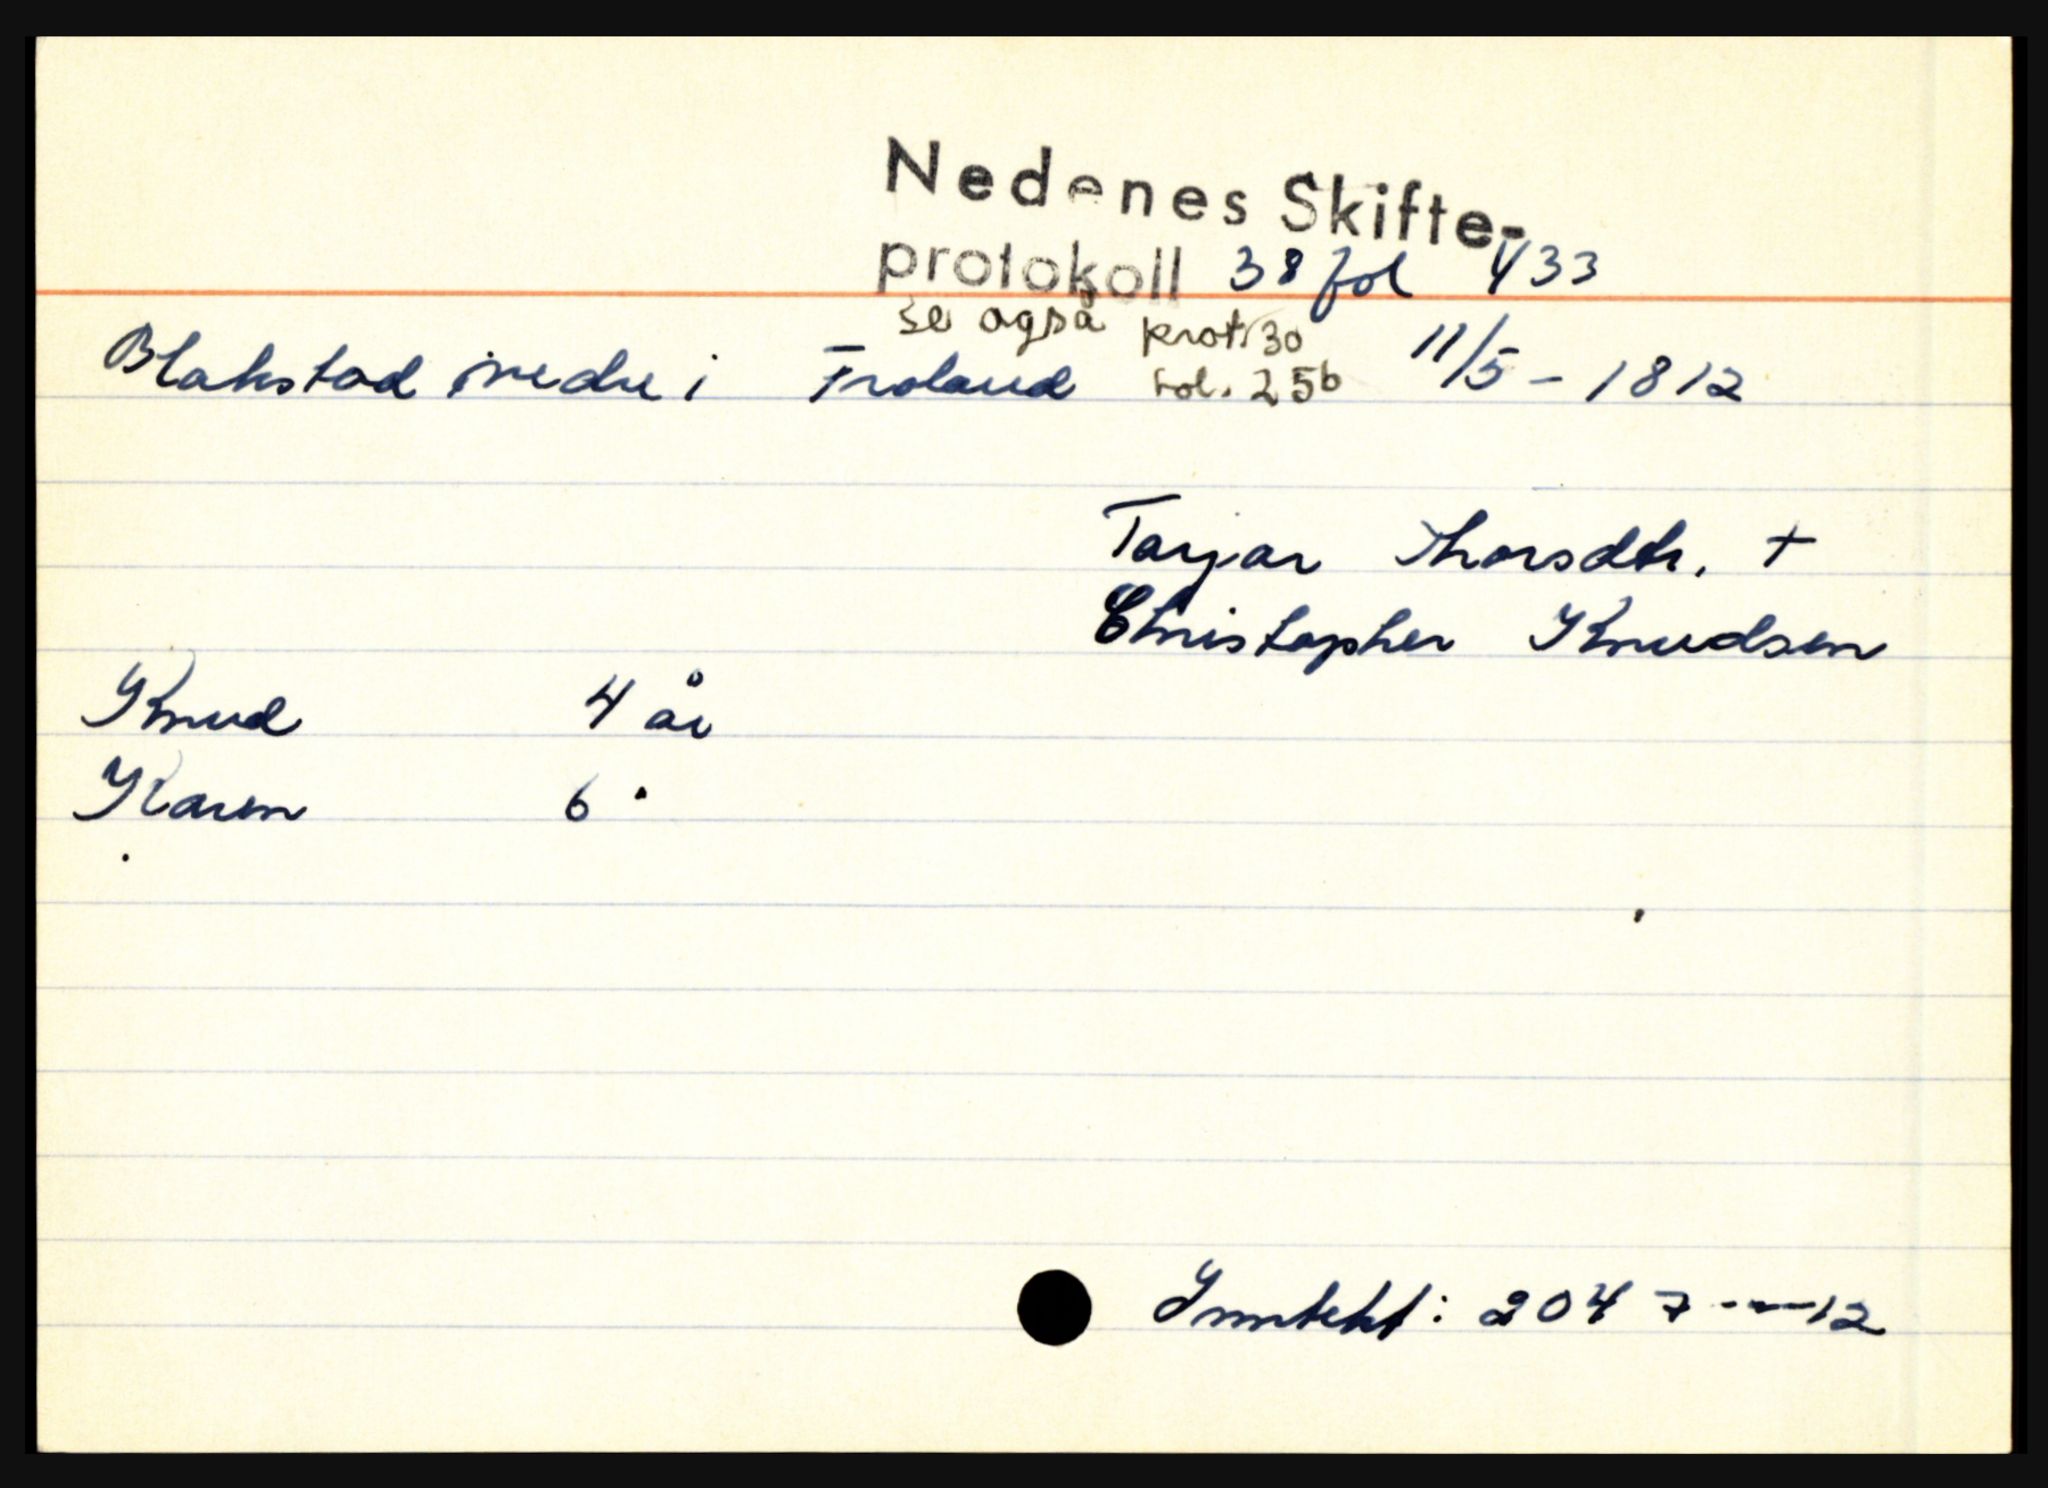 Nedenes Skifte-
protokoll 38 fol 433
se også prot. 30
fol. 25b
Blakstad nedre i Froland 11/5 - 1812
Tarjar Thorsdtr. +
Christopher Knudsen
Knud 4 år
Karen 6 "
Inntekt: 2047 - - 12